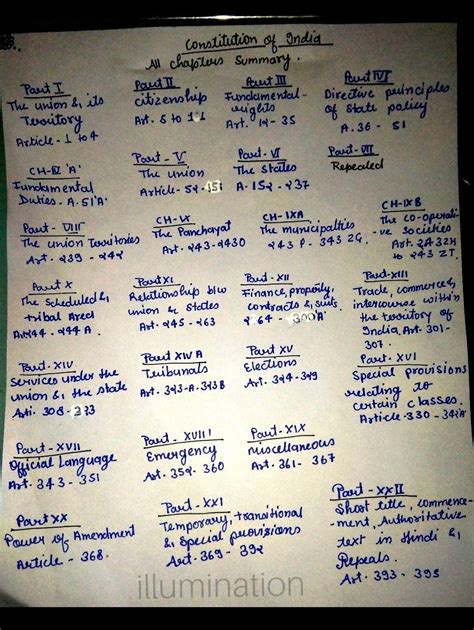 Constitution of India
All chapters summary.
Part I
The union & its
Territory
Article - 1 to 4
Part II
citizenship
Art. 5 to 11
Part III
Fundamental-
rights
Art. 12 - 35
Part IV
Directive principles
of State policy
A. 36 - 51
CH-IV 'A'
Fundamental
Duties. A. 51'A'
Part - V
The union
Article - 52 - 151
Part - VI
The States
A. 152 - 237
Part - VII
Repealed
Part - VIII
The union Territories
Art. - 239 - 242
CH-IX
The Panchayat
Art. - 243 - 243O
CH-IXA
The municipalties
243 P. - 343 ZG.
CH-IXB
The co-operati
-ve Societies
Art. 243ZH
to 243 ZT.
Part X
The Scheduled &
tribal Area
Art. 244 - 244 A.
Part XI
Relationship b/w
union & States
Art. - 245 - 263
Part - XII
Finance, property,
contracts & suits
264 - 300'A'
Part-XIII
Trade, commerce &
intercourse within
the territory of
India, Art. 301-
307.
Part - XIV
Services under the
union & the state
Arti. 308 - 323
Part XIV A
Tribunals
Art. - 323-A - 323B
Part XV
Elections
Art. 324 - 329
Part - XVI
Special provisions
relating to
certain classes.
Article - 330 - 342A
Part - XVII
Official Language
Art. - 343 - 351
Part - XVIII
Emergency
Art. - 352 - 360
Part - XIX
miscellaneous
Art. - 361 - 367
Part XX
Power of Amendment
Article - 368.
Part - XXI
Temporary, transitional
& Special provisions
Art. - 369 - 392
Part - XXII
Short title, commence-
-ment, Authoritative
text in Hindi &
Repeals.
Art. - 393 - 395
illumination